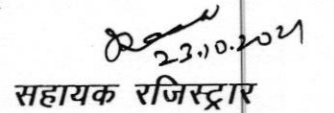 23.10.2021
सहायक रजिस्ट्रार